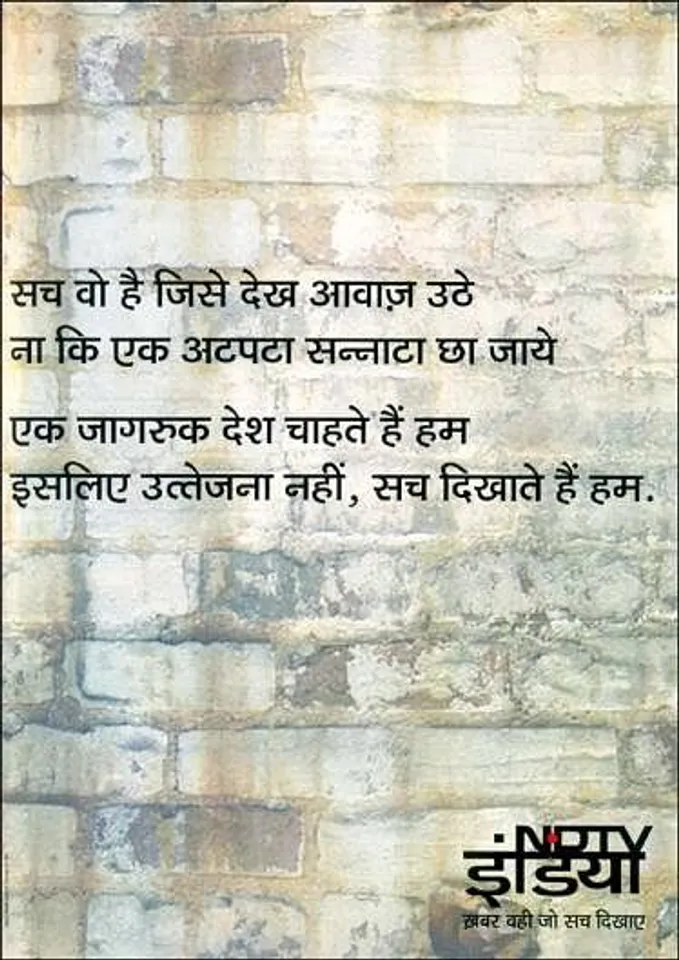 सच वो है जिसे देख आवाज़ उठे
ना कि एक अटपटा सन्नाटा छा जाये
एक जागरुक देश चाहते हैं हम
इसलिए उत्तेजना नहीं, सच दिखाते हैं हम.
NDTV
इंडिया
ख़बर वही जो सच दिखाए